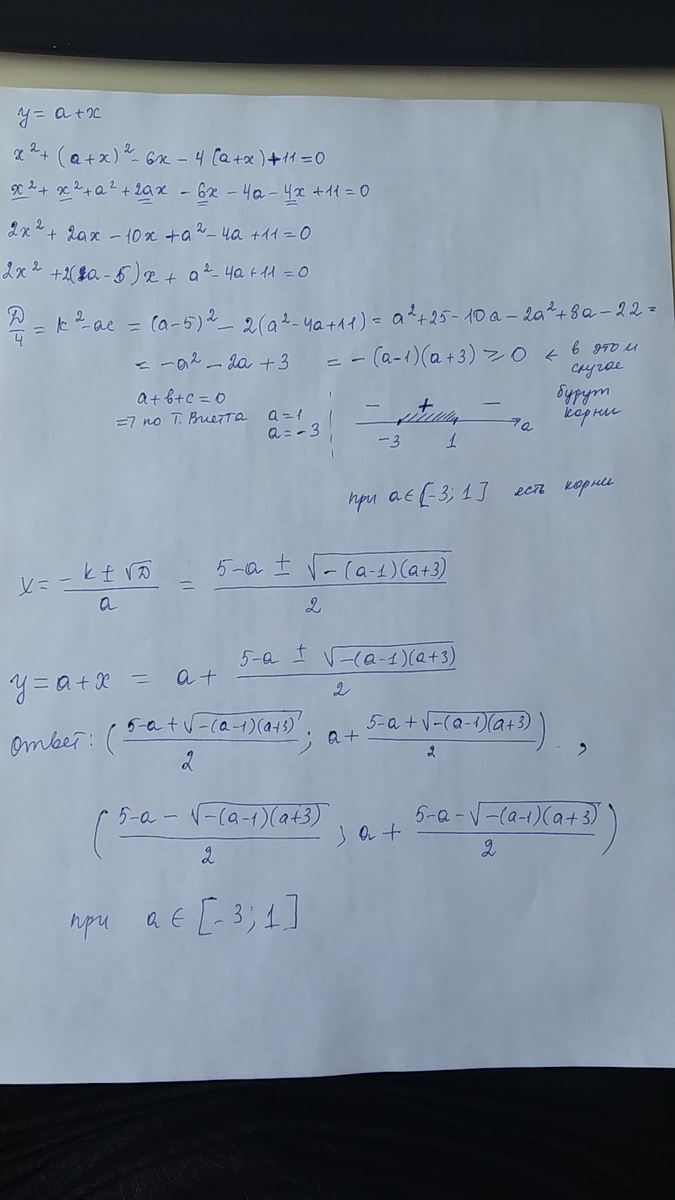 y = a+x
x² + (a+x)² - 6x - 4(a+x) + 11 = 0
x² + x² + a² + 2ax - 6x - 4a - 4x + 11 = 0
2x² + 2ax - 10x + a² - 4a + 11 = 0
2x² + 2(a-5)x + a² - 4a + 11 = 0
D/4 = k² - ac = (a-5)² - 2(a² - 4a + 11) = a² + 25 - 10a - 2a² + 8a - 22 =
= -a² - 2a + 3 = -(a-1)(a+3) ⩾ 0 ← в этом случае будут корни
a+b+c=0
=> по Т. Виетта a=1
a=-3
- + -
-3 1 a
при a∈[-3; 1] есть корни
x = (-k ± √D)/a = (5-a ± √(-(a-1)(a+3)))/2
y = a+x = a + (5-a ± √(-(a-1)(a+3)))/2
ответ: ((5-a + √(-(a-1)(a+3)))/2 ; a + (5-a + √(-(a-1)(a+3)))/2) ,
((5-a - √(-(a-1)(a+3)))/2 ; a + (5-a - √(-(a-1)(a+3)))/2)
при a ∈ [-3; 1]